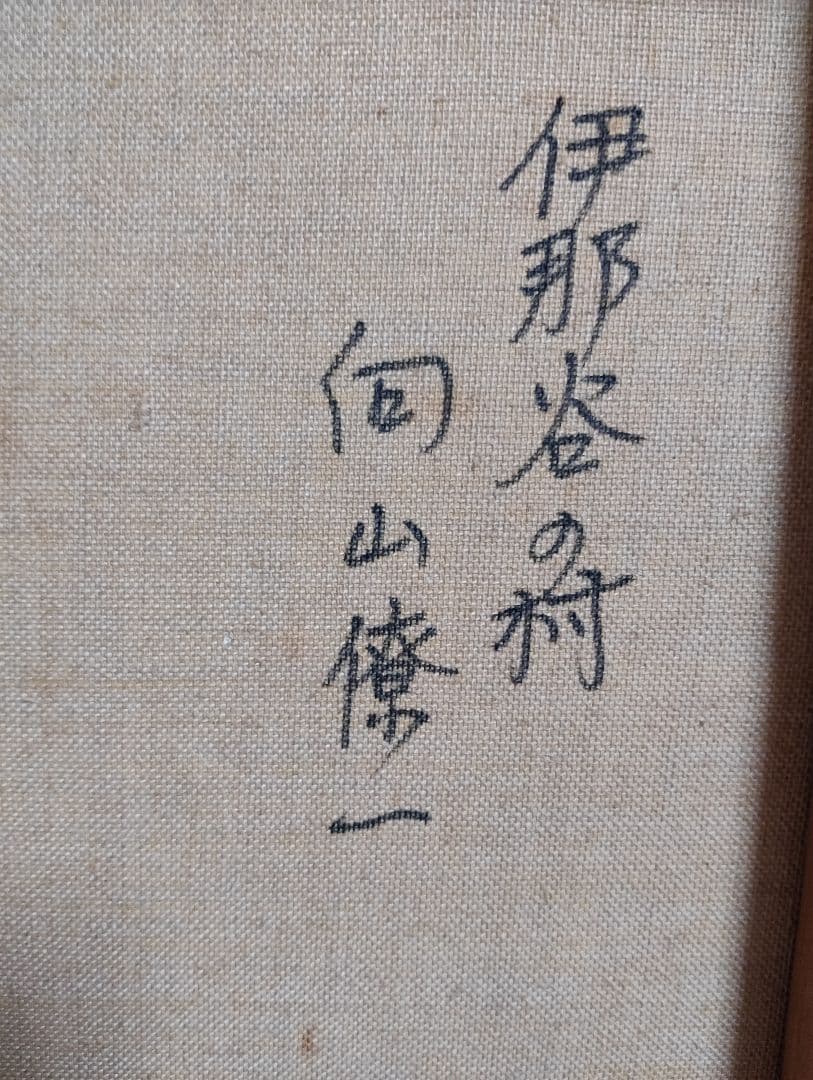 伊那谷の村
向山僚一